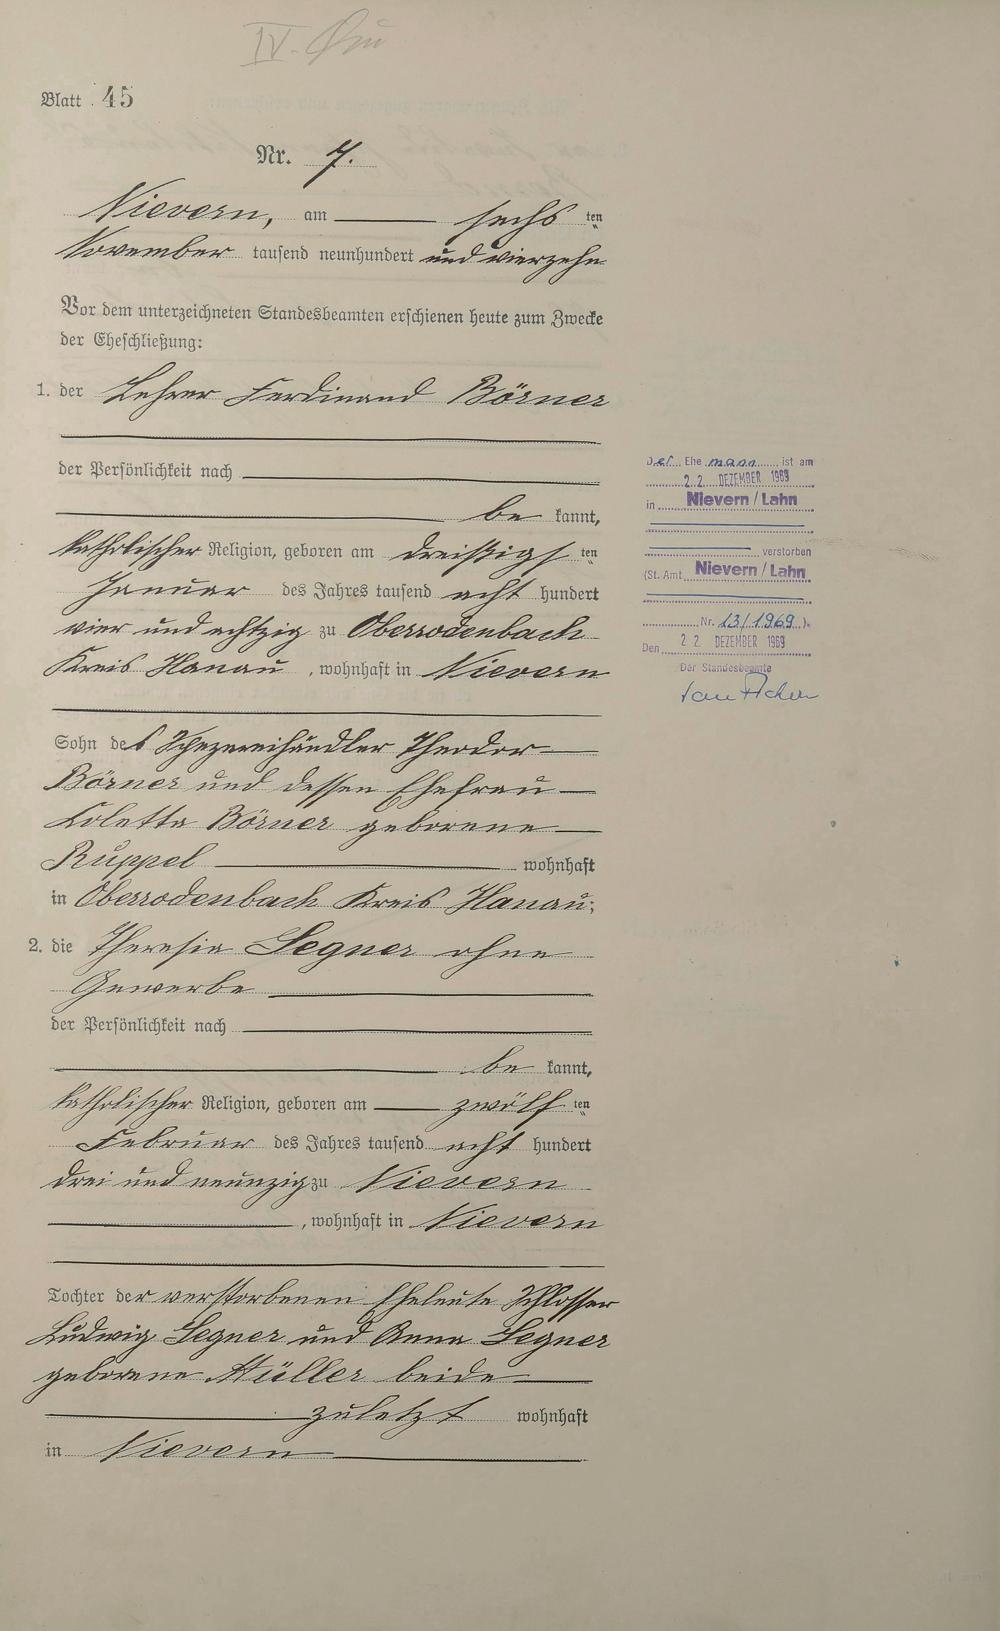 Blatt 45
Nr. 7.
Nievern, am sechs ten
November tausend neunhundert und vierzehn
Vor dem unterzeichneten Standesbeamten erschienen heute zum Zwecke
der Eheschließung:
1. der Lehrer Ferdinand Börner
der Persönlichkeit nach
be kannt,
katholischer Religion, geboren am dreißigs ten
Januar des Jahres tausend acht hundert
vier und achtzig zu Oberrodenbach
Kreis Hanau, wohnhaft in Nievern
Sohn des Spezereihändler Theodor
Börner und dessen Ehefrau
Koletta Börner geborene
Ruppel wohnhaft
in Oberrodenbach Kreis Hanau;
2. die Theresia Segner ohne
Gewerbe
der Persönlichkeit nach
be kannt,
katholischer Religion, geboren am zwölf ten
Februar des Jahres tausend acht hundert
drei und neunzig zu Nievern
, wohnhaft in Nievern
Tochter der verstorbenen Eheleute Schlosser
Ludwig Segner und Anna Segner
geborene Müller beide
zuletzt wohnhaft
in Nievern
Der Ehe mann ist am
22. DEZEMBER 1969
in Nievern/Lahn
verstorben
(St. Amt Nievern/Lahn
Nr. 13/1969).
Den 22 DEZEMBER 1969
Der Standesbeamte